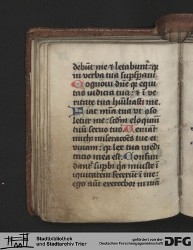 debūt me ⁊ letabunt̄: q̄
in verba tua supspaui
Cognoui dn̄e q̄ equi
tas iudicia tua: ⁊ ī ve
ritate tua hūiliasti me
Fiat mīa tua vt ↄso
letur me: scdm̄ eloquiū
tuū seruo tuo Veniāt
michi miseracōes tue et
viuam: q̄ lex tua medi
tatio mea est Confun
dant̄ supbi q̄a iniuste
iniquitatem fecerūt ī me:
ego aūt exercebor in mā
Stadtbibliothek
und Stadtarchiv Trier
gefördert von der
DFG
Deutschen Forschungsgemeinschaft